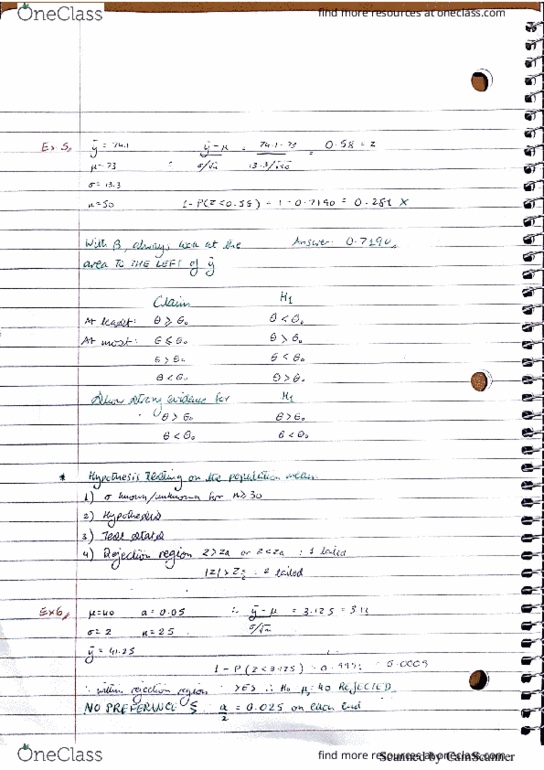 OneClass find more resources at oneclass.com
Ex 5, ȳ = 74.1 ȳ-μ = 74.1-73 = 0.58 = z
μ=73 ∴ σ/√n 13.3/√50
σ=13.3
n=50 1-P(Z<0.58) = 1-0.7190 = 0.281 X
With B, always, look at the Answer: 0.7190
area TO THE LEFT of ȳ
Claim H₁
At least: θ ≥ θ₀ θ < θ₀
At most: θ ≤ θ₀ θ > θ₀
θ > θ₀ θ < θ₀
θ < θ₀ θ > θ₀
Show strong evidence for H₁
θ > θ₀ θ > θ₀
θ < θ₀ θ < θ₀
* Hypothesis Testing on the population mean
1) σ known/unknown for n≥30
2) Hypothesis
3) Test
4) Rejection region z>za or z<za : 1 tailed
|z| > : 2 tailed
Ex 6, μ=40 a=0.05 ∴ ȳ-μ = 3.125 =
σ=2 n=25 σ/√n
ȳ=41.25
1-P(Z<3.125)
∴ within rejection region YES ∴ H₀ μ=40 REJECTED
NO PREFERENCE a/2 = 0.025 on each end
OneClass find more resources at oneclass.com
Scanned by CamScanner